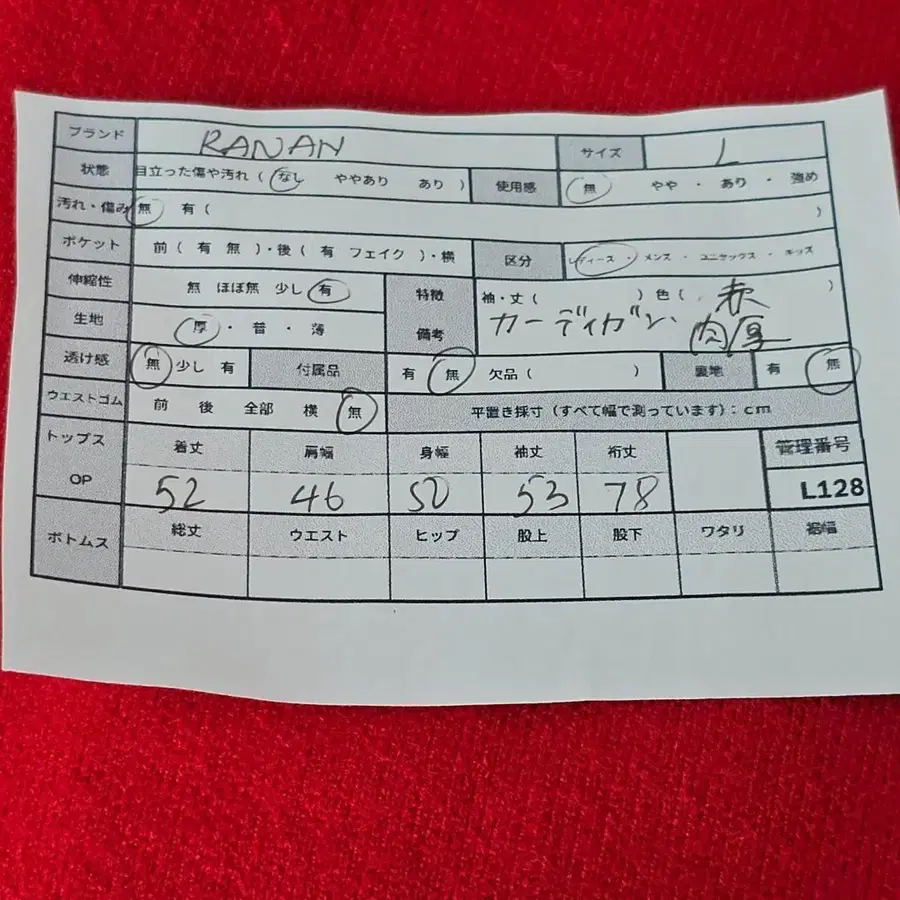 ブランド RANAN サイズ L
状態 目立った傷や汚れ ( なし ややあり あり ) 使用感 無 やや ・ あり ・ 強め
汚れ・傷み 無 有 ( )
ポケット 前 ( 有 無 )・後 ( 有 フェイク )・横 区分 レディース ・ メンズ ・ ユニセックス ・ キッズ
伸縮性 無 ほぼ無 少し 有 特徴 袖・丈 ( ) 色 ( 赤 )
生地 厚 ・ 普 ・ 薄 備考 カーディガン、肉厚
透け感 無 少し 有 付属品 有 無 欠品 ( ) 裏地 有 無
ウエストゴム 前 後 全部 横 無 平置き採寸 (すべて幅で測っています) : cm
トップス 着丈 肩幅 身幅 袖丈 裄丈 管理番号
OP 52 46 50 53 78 L128
ボトムス 総丈 ウエスト ヒップ 股上 股下 ワタリ 裾幅